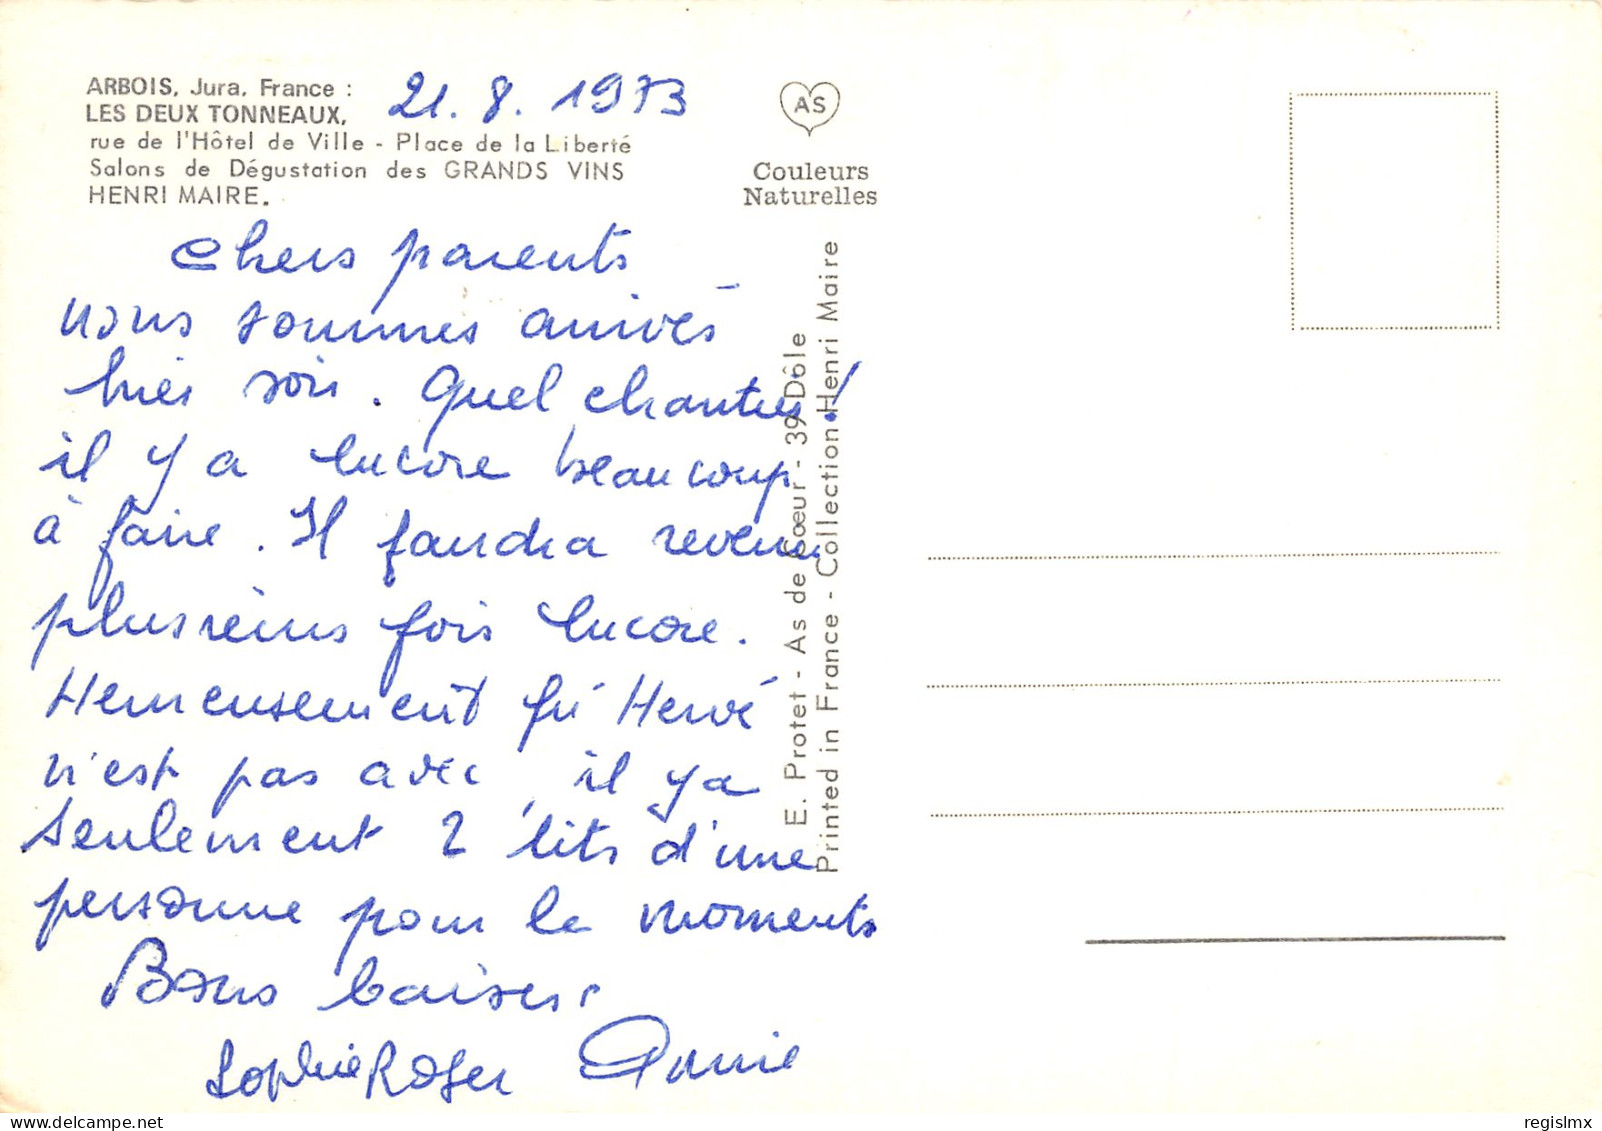 ARBOIS, Jura, France :
21.8.1973
LES DEUX TONNEAUX,
rue de l'Hôtel de Ville - Place de la Liberté
Salons de Dégustation des GRANDS VINS
HENRI MAIRE.
AS
Couleurs
Naturelles
Chers parents
nous sommes arrivés
hier soir. Quel chantier!
il y a encore beaucoup
à faire. Il faudra revenir
plusieurs fois encore.
Heureusement qu' Hervé
n'est pas avec, il y a
seulement 2 lits d'une
personne pour le moments
Bons baisers
Sophie Roger Annie
E. Protet - As de Cœur - 39 Dôle
Printed in France - Collection Henri Maire
regislmx